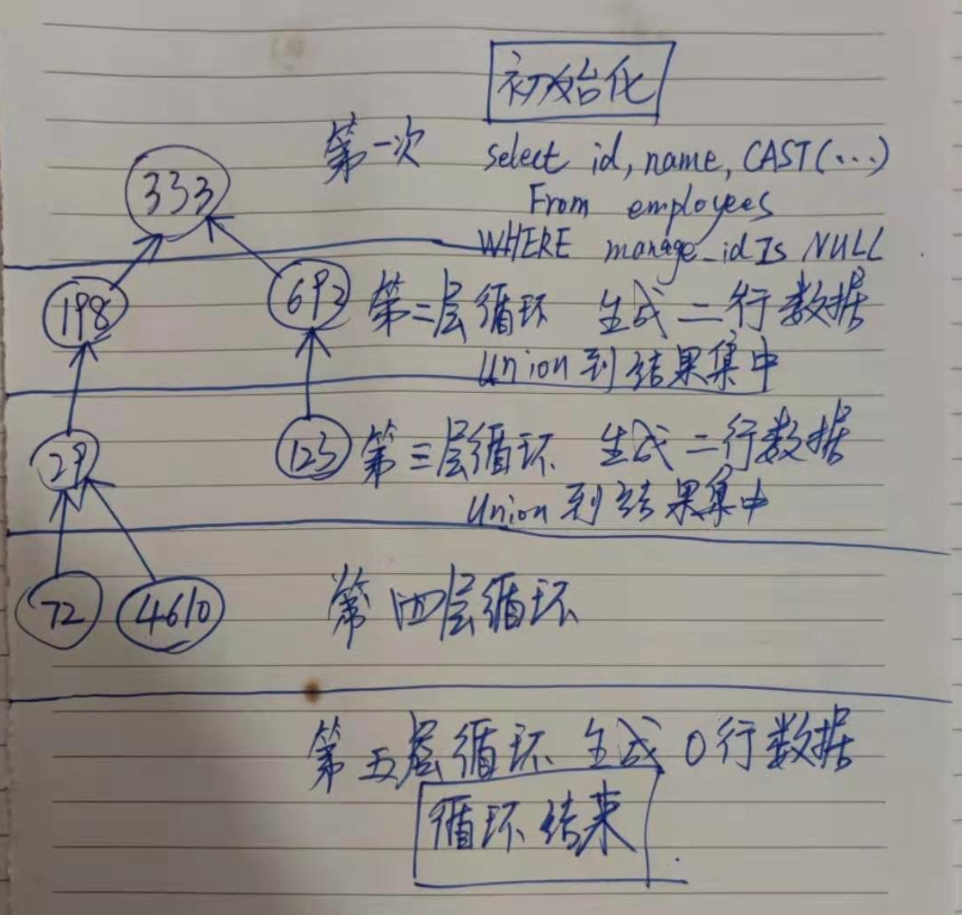 初始化
第一次 select id, name, CAST(...)
From employees
WHERE manage_id Is NULL
333
198 692 第二层循环 生成二行数据
Union到结果集中
29 123 第三层循环 生成二行数据
Union到结果集中
72 4610 第四层循环
第五层循环 生成0行数据
循环结束